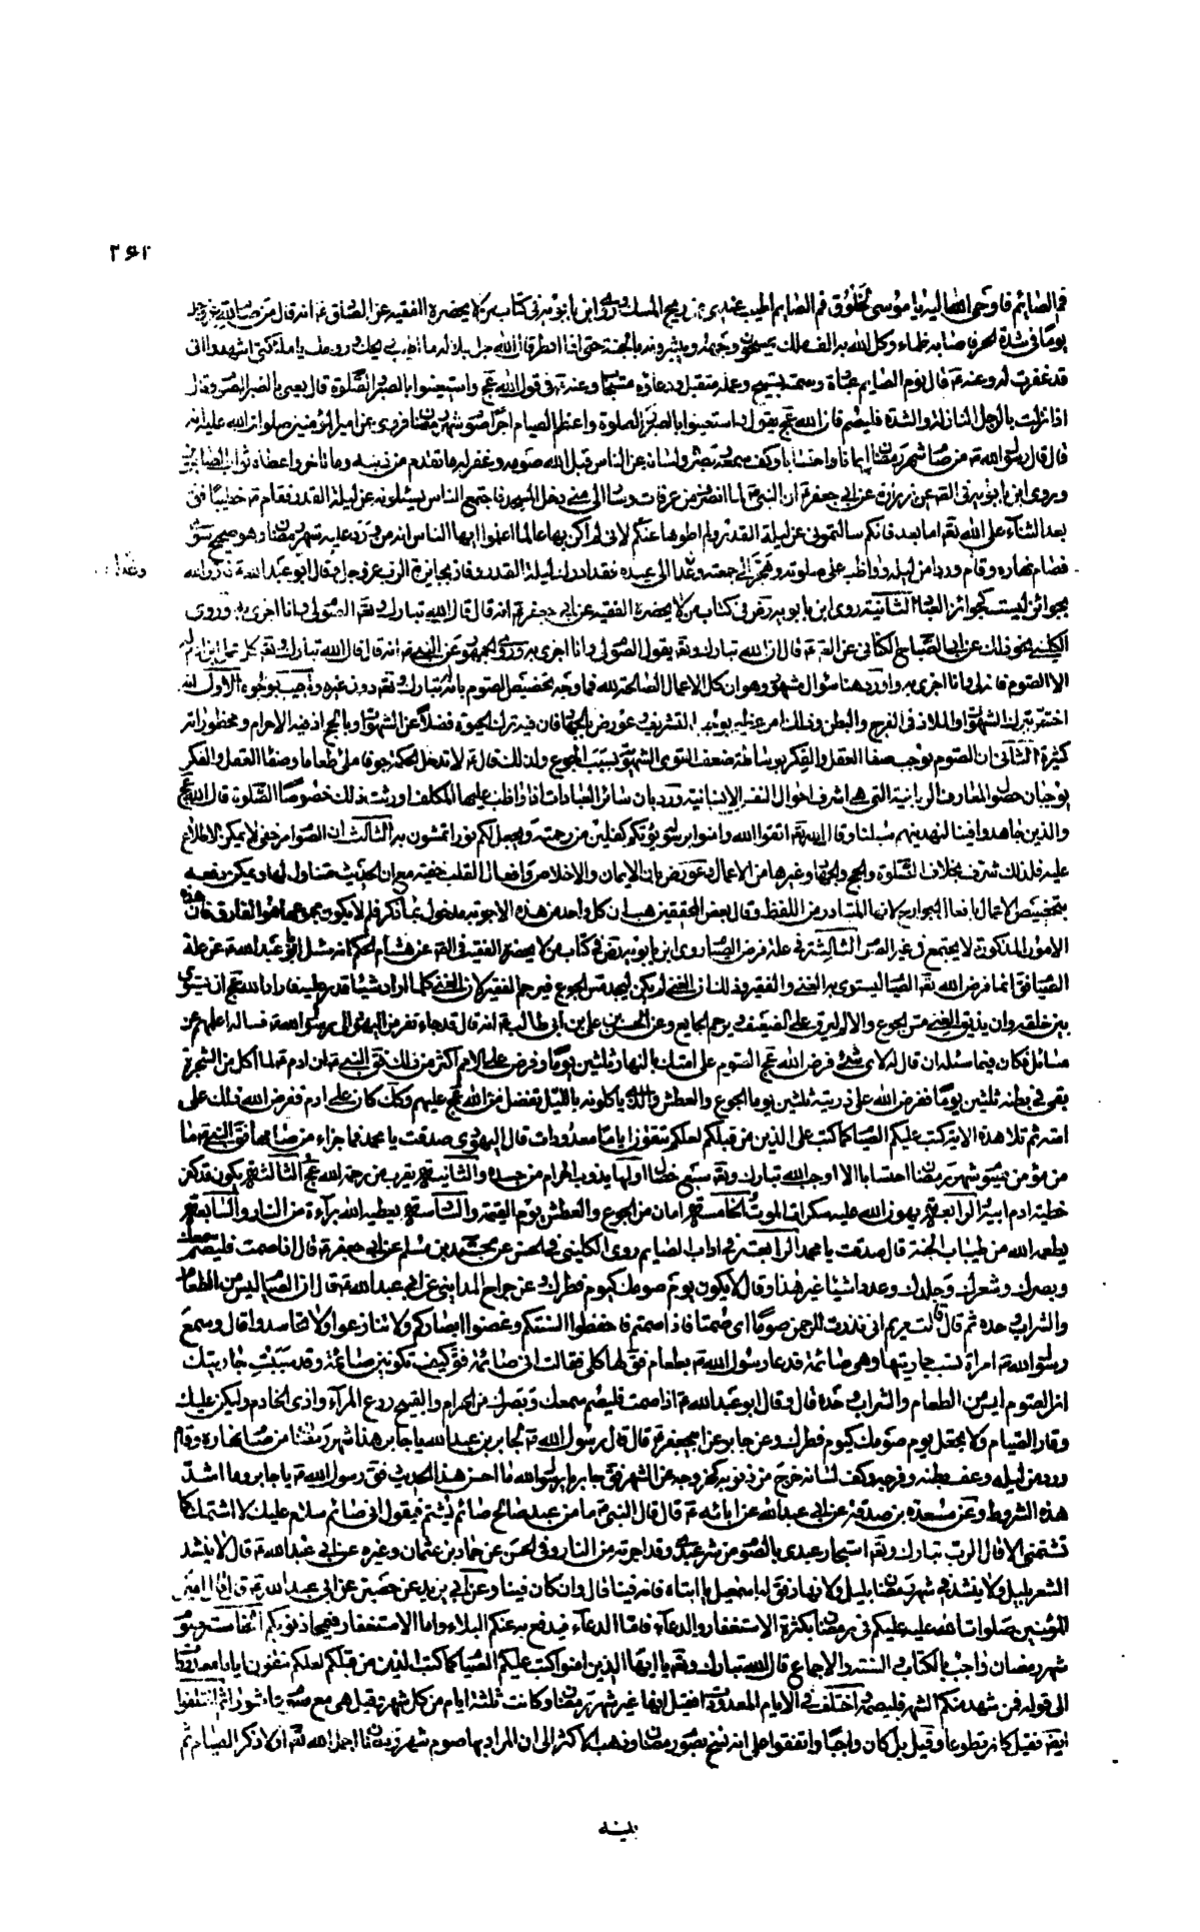 ۲۶۲
فم الصايم فاوحى الله اليه يا موسى لخلوق فم الصايم اطيب عندى من ريح المسك وروى ابن بابويه فى كتاب من لا يحضره الفقيه عن الصادق ع انه قال من صام لله عز وجل
يوما فى شدة الحر فاصابه ظماء وكل الله به الف ملك يمسحون وجهه ويبشرونه بالجنة حتى اذا افطر قال الله جل جلاله ما اطيب ريحك وروحك يا ملئكتى اشهدوا انى
قد غفرت له وعنه ع قال نوم الصايم عبادة وصمته تسبيح وعمله متقبل ودعاؤه مستجاب وعنه ع فى قول الله عج واستعينوا بالصبر والصلوة قال يعنى بالصبر الصوم وقال
اذا نزلت بالرجل النازلة والشدة فليصم فان الله عج يقول واستعينوا بالصبر والصلوة واعظم الصيام اجرا صوم شهر رمضان فروى عن امير المؤمنين صلوات الله عليه انه
قال قال رسول الله ص من صام شهر رمضان ايمانا واحتسابا وكف سمعه وبصره ولسانه عن الناس قبل الله صومه وغفر له ما تقدم من ذنبه وما تاخر واعطاه ثواب الصابرين
وروى ابن بابويه فى الفقيه عن زرارة عن ابى جعفر ع ان النبى ص لما انصرف من عرفات وسار الى منى دخل المسجد فاجتمع الناس يسئلونه عن ليلة القدر فقام ص خطيبا فق
بعد الثناء على الله تقه اما بعد فانكم سالتمونى عن ليلة القدر ولم اطوها عنكم لانى لم اكن بها عالما اعلموا ايها الناس انه من ورد عليه شهر رمضان وهو صحيح سوى
فصام نهاره وقام وردا من ليله وواظب على صلوته وهجر الى جمعته وغدا الى عيده فقد ادرك ليلة القدر وفاز بجايزة الرب عز وجل قال ابو عبد الله ع فاز والله
بجوائز ليست كجوائز العباد الثانية روى ابن بابويه رض فى كتاب من لا يحضره الفقيه عن ابى جعفر ع انه قال قال الله تبارك وتقه الصوم لى وانا اجزى به وروى
الكلينى نحو ذلك عن ابى الصباح الكنانى عن القه ع قال ان الله تبارك وتقه يقول الصوم لى وانا اجزى به وروى الجمهور عن النبى ص انه قال قال الله تبارك وتقه كل عمل ابن ادم له
الا الصوم فانه لى وانا اجزى به واورد هنا سؤال مشهور وهو ان كل الاعمال الصالحة لله فما وجه تخصيص الصوم بانه له تبارك وتقه دون غيره واجيب بوجوه الاول انه
اختص بترك الشهوات والملاذ فى الفرج والبطن وذلك امر عظيم يوجب التشريف وعورض بالجهاد فان فيه ترك الحيوة فضلا عن الشهوات وبالحج اذ فيه الاحرام ومحظوراته
كثيرة الثانى ان الصوم يوجب صفا العقل والفكر بواسطة ضعف القوى الشهوية بسبب الجوع ولذلك قال ع لا تدخل الحكمة جوفا ملئ طعاما وصفا العقل والفكر
يوجبان حصول المعارف الربانية التى هى اشرف احوال النفس الانسانية ورد بان سائر العبادات اذا واظب عليها المكلف اورثت ذلك خصوصا الصلوة قال الله عج
والذين جاهدوا فينا لنهدينهم سبلنا وقال الله تقه اتقوا الله وامنوا برسوله يؤتكم كفلين من رحمته ويجعل لكم نورا تمشون به الثالث ان الصوم امر خفى لا يمكن الاطلاع
عليه فلذلك شرف بخلاف الصلوة والحج والجهاد وغيرها من الاعمال وعورض بان الايمان والاخلاص وافعال القلب خفية مع ان الحديث متناول لها ويمكن دفعه
بتخصيص الاعمال بافعال الجوارح لانها المتبادر من اللفظ وقال بعض المحققين هب ان كل واحد من هذه الاجوبة مدخول بما ذكر فلم لا يكون مجموعها هو الفارق فان هذه
الامور المذكورة لا يجتمع فى غير الصوم الثالثة فى علة فرض الصيام روى ابن بابويه رض فى كتاب من لا يحضره الفقيه فى القه عن هشام الحكم انه سئل ابو عبد الله ع عن علة
الصيام فق انما فرض الله تقه الصيام ليستوى به الغنى والفقير وذلك ان الغنى لم يكن ليجد مس الجوع فيرحم الفقير لان الغنى كلما اراد شيئا قدر عليه فاراد الله عج ان يسوى
بين خلقه وان يذيق الغنى مس الجوع والالم ليرق على الضعيف ويرحم الجايع وعن الحسن بن على بن ابى طالب ع انه قال قد جاء نفر من اليهود الى رسول الله ص فساله اعلمهم عن
مسائل فكان فيما سئله ان قال له لاى شئ فرض الله عج الصوم على امتك بالنهار ثلثين يوما وفرض على الامم اكثر من ذلك فق النبى ص ان ادم ع لما اكل من الشجرة
بقى فى بطنه ثلثين يوما ففرض الله على ذريته ثلثين يوما الجوع والعطش والذى ياكلونه بالليل تفضل من الله عج عليهم وكك كان على ادم ففرض الله ذلك على
امته ثم تلا هذه الاية كتب عليكم الصيام كما كتب على الذين من قبلكم لعلكم تتقون اياما معدودات قال اليهودى صدقت يا محمد فما جزاء من صامها فق النبى ص ما
من مؤمن يصوم شهر رمضان احتسابا الا اوجب الله تبارك وتقه سبع خصال اولها يذوب الحرام من جسده والثانية يقرب من رحمة الله عج الثالثة يكون قد كفر
خطيئة ادم ابيه الرابعة يهون الله عليه سكرات الموت الخامسة امان من الجوع والعطش يوم القيمة والسادسة يعطيه الله براءة من النار والسابعة
يطعمه الله من طيبات الجنة قال صدقت يا محمد الرابعة فى اداب الصايم روى الكلينى فى الحسن عن محمد بن مسلم عن ابى جعفر ع قال اذا صمت فليصم سمعك
وبصرك وشعرك وجلدك وعدد اشيا غير هذا وقال لا يكون يوم صومك كيوم فطرك وعن جراح المداينى عن ابى عبد الله ع قال ان الصيام ليس من الطعام
والشراب وحده ثم قال قالت مريم انى نذرت للرحمن صوما اى صمتا فاذا صمتم فاحفظوا السنتكم وغضوا ابصاركم ولا تنازعوا ولا تحاسدوا قال وسمع
رسول الله ص امراة تسب جاريتها وهى صائمة فدعا رسول الله ص بطعام فق لها كلى فقالت انى صائمة فق كيف تكونين صائمة وقد سببت جاريتك
ان الصوم ليس من الطعام والشراب وحده قال وقال ابو عبد الله ع اذا صمت فليصم سمعك وبصرك من الحرام والقبيح ودع المراء واذى الخادم وليكن عليك
وقار الصيام ولا تجعل يوم صومك كيوم فطرك وعن جابر عن ابى جعفر ع قال قال رسول الله ص لجابر بن عبد الله يا جابر هذا شهر رمضان من صام نهاره وقام
وردا من ليله وعف بطنه وفرجه وكف لسانه خرج من ذنوبه كخروجه عن الشهر فق جابر يا رسول الله ما احسن هذا الحديث فق رسول الله ص يا جابر وما اشد
هذه الشروط وعن مسعدة بن صدقة عن ابى عبد الله عن ابائه ع قال قال النبى ص ما من عبد صالح صائم يشتم فيقول انى صائم سلام عليك لا اشتمك كما
تشتمنى الا قال الرب تبارك وتقه استجار عبدى بالصوم من شر عبدى وقد اجرته من النار وفى الحسن عن حماد بن عثمان وغيره عن ابى عبد الله ع قال لا ينشد
الشعر بليل ولا ينشد فى شهر رمضان بليل ولا نهار فق له اسمعيل يا ابتاه فانه فينا قال وان كان فينا وعن ابى بريد عن حصين عن ابى عبد الله ع قال قال امير
المؤمنين صلوات الله عليه عليكم فى رمضان بكثرة الاستغفار والدعاء فاما الدعاء فيدفع به عنكم البلاء واما الاستغفار فيمحا ذنوبكم الخامسة وصوم
شهر رمضان واجب بالكتاب والسنة والاجماع قال الله تبارك وتقه يا ايها الذين امنوا كتب عليكم الصيام كما كتب الذين من قبلكم لعلكم تتقون اياما معدودات
الى قوله فمن شهد منكم الشهر فليصمه اختلف فى الايام المعدودات فقيل انها غير شهر رمضان وكانت ثلثة ايام من كل شهر وقيل هى مع صوم عاشورا ثم اختلفوا
ايقه فقيل كان تطوعا وقيل بل كان واجبا واتفقوا على انه نسخ بصوم رمضان وذهب الاكثر الى ان المراد بها صوم شهر رمضان اجمل الله تقه اولا ذكر الصيام ثم
وغدا
بينه